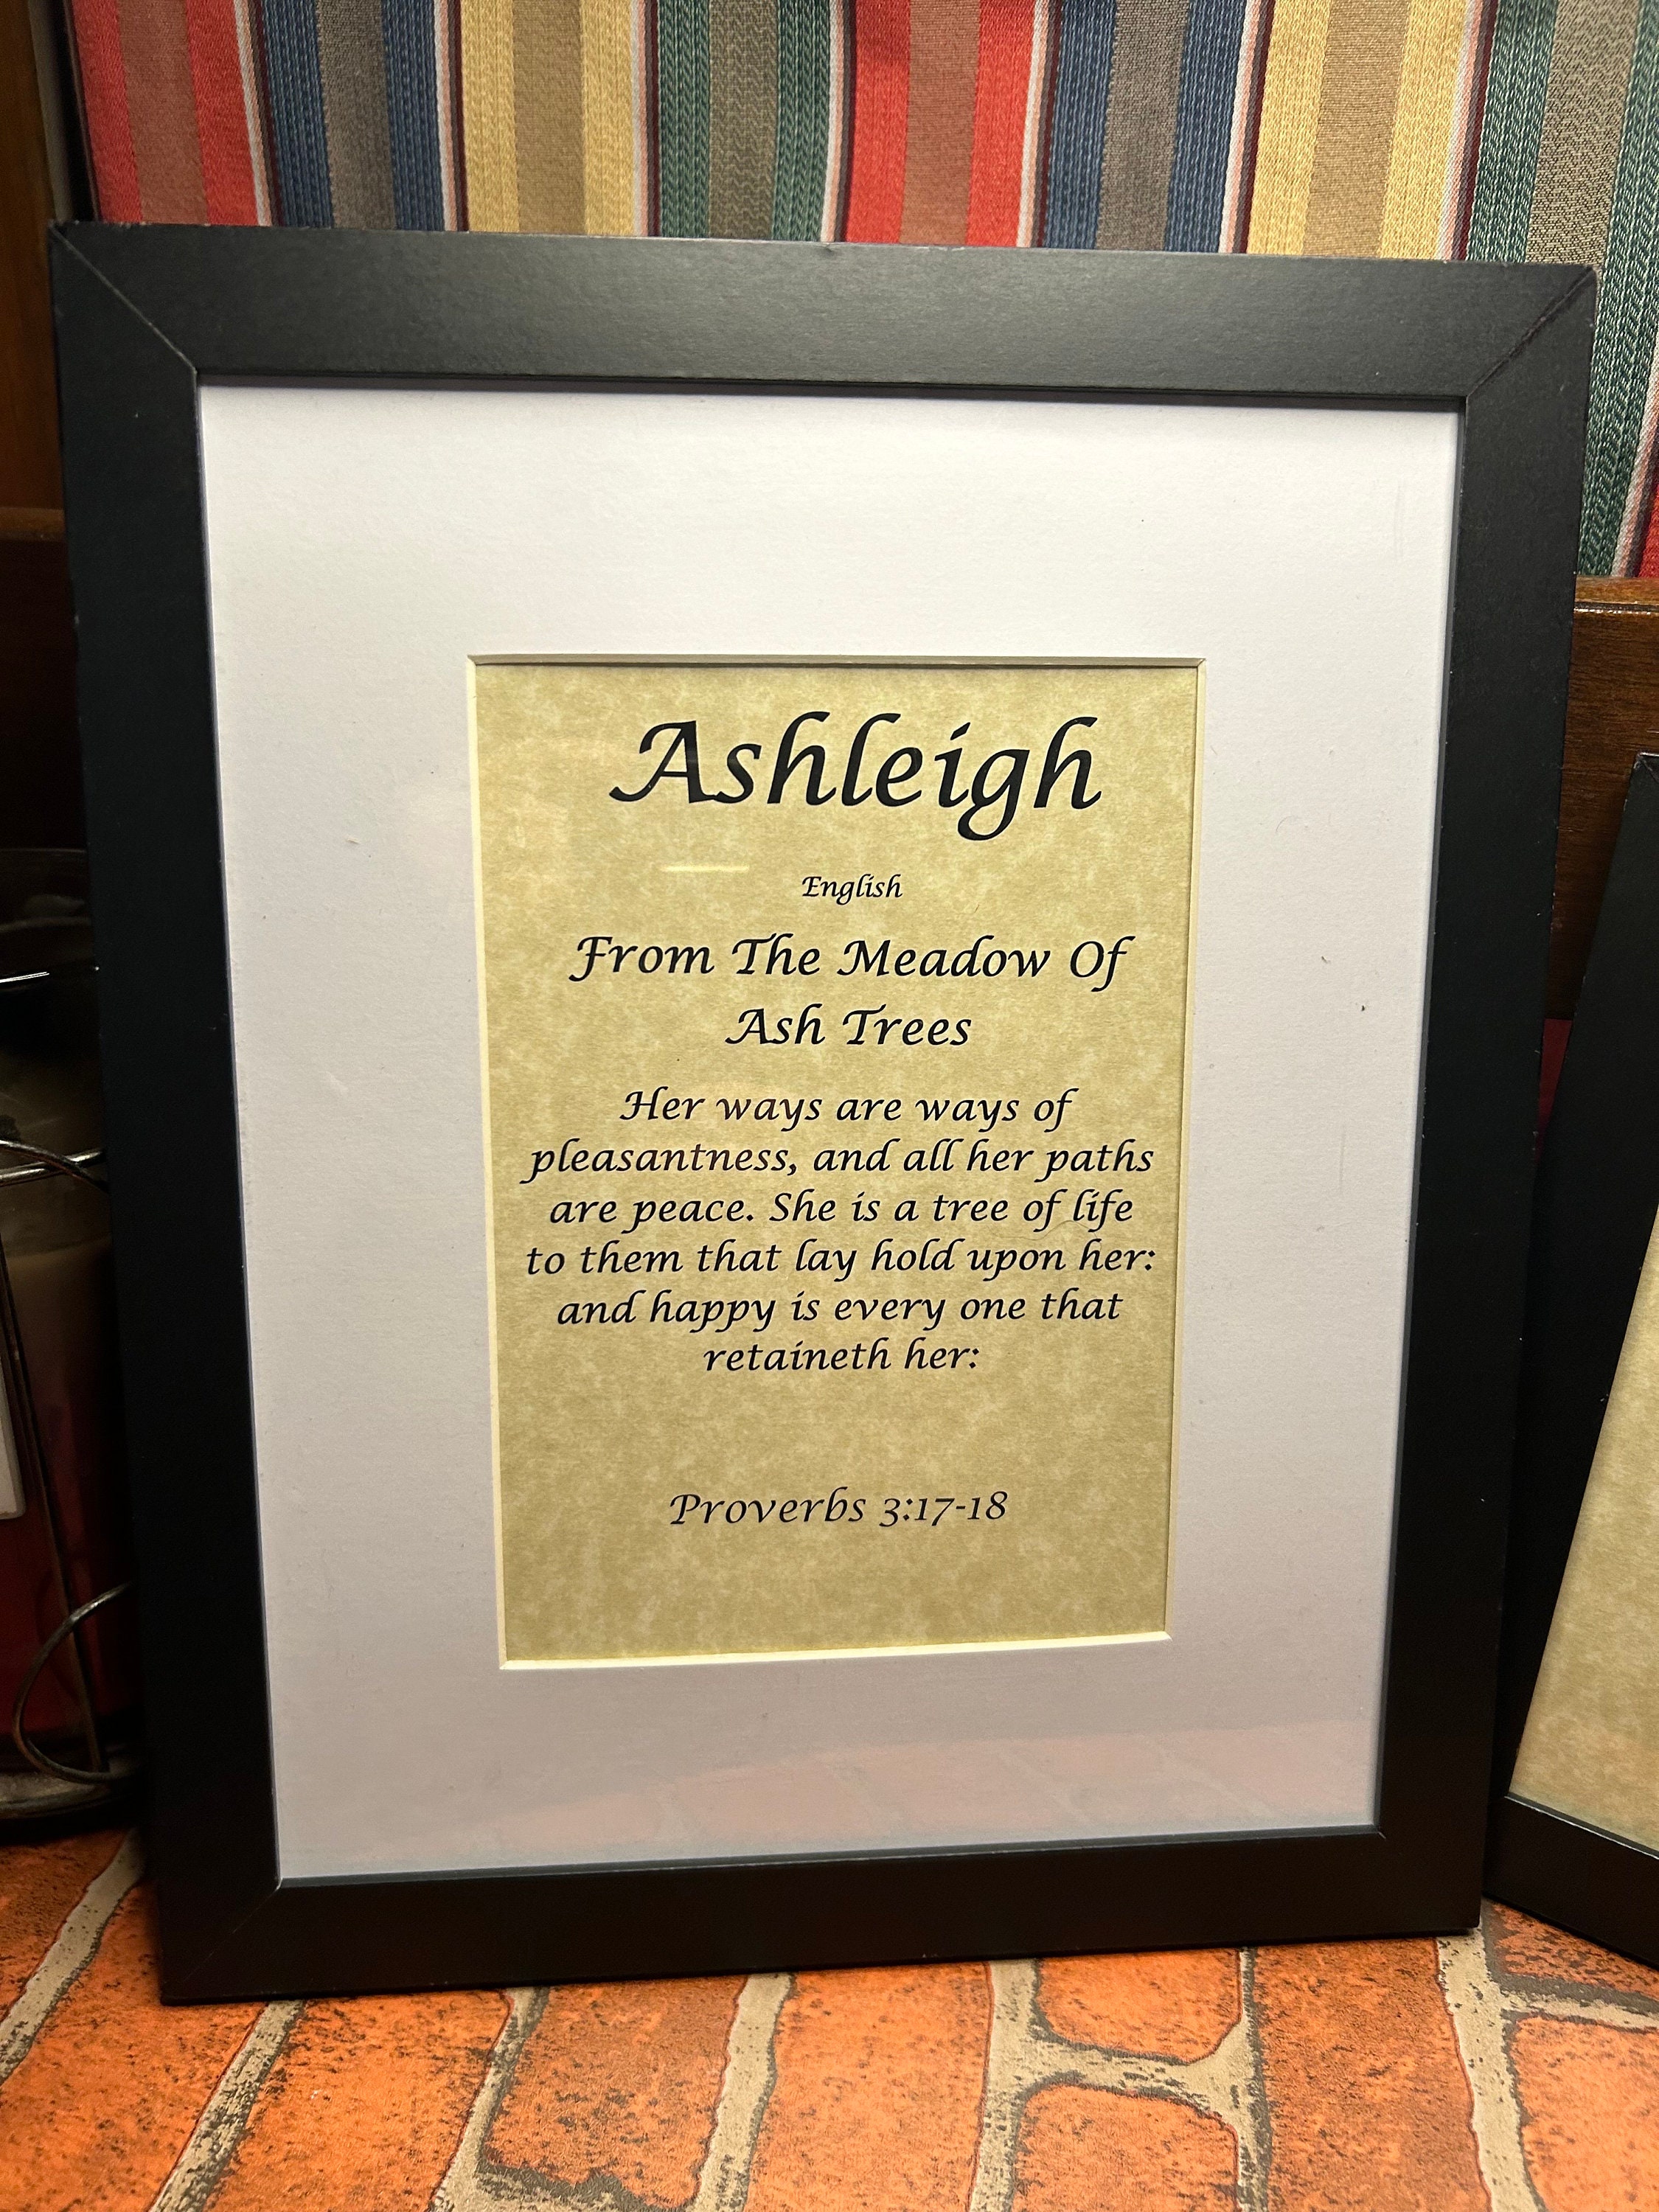 Ashleigh
English
From The Meadow Of
Ash Trees
Her ways are ways of
pleasantness, and all her paths
are peace. She is a tree of life
to them that lay hold upon her:
and happy is every one that
retaineth her:
Proverbs 3:17-18